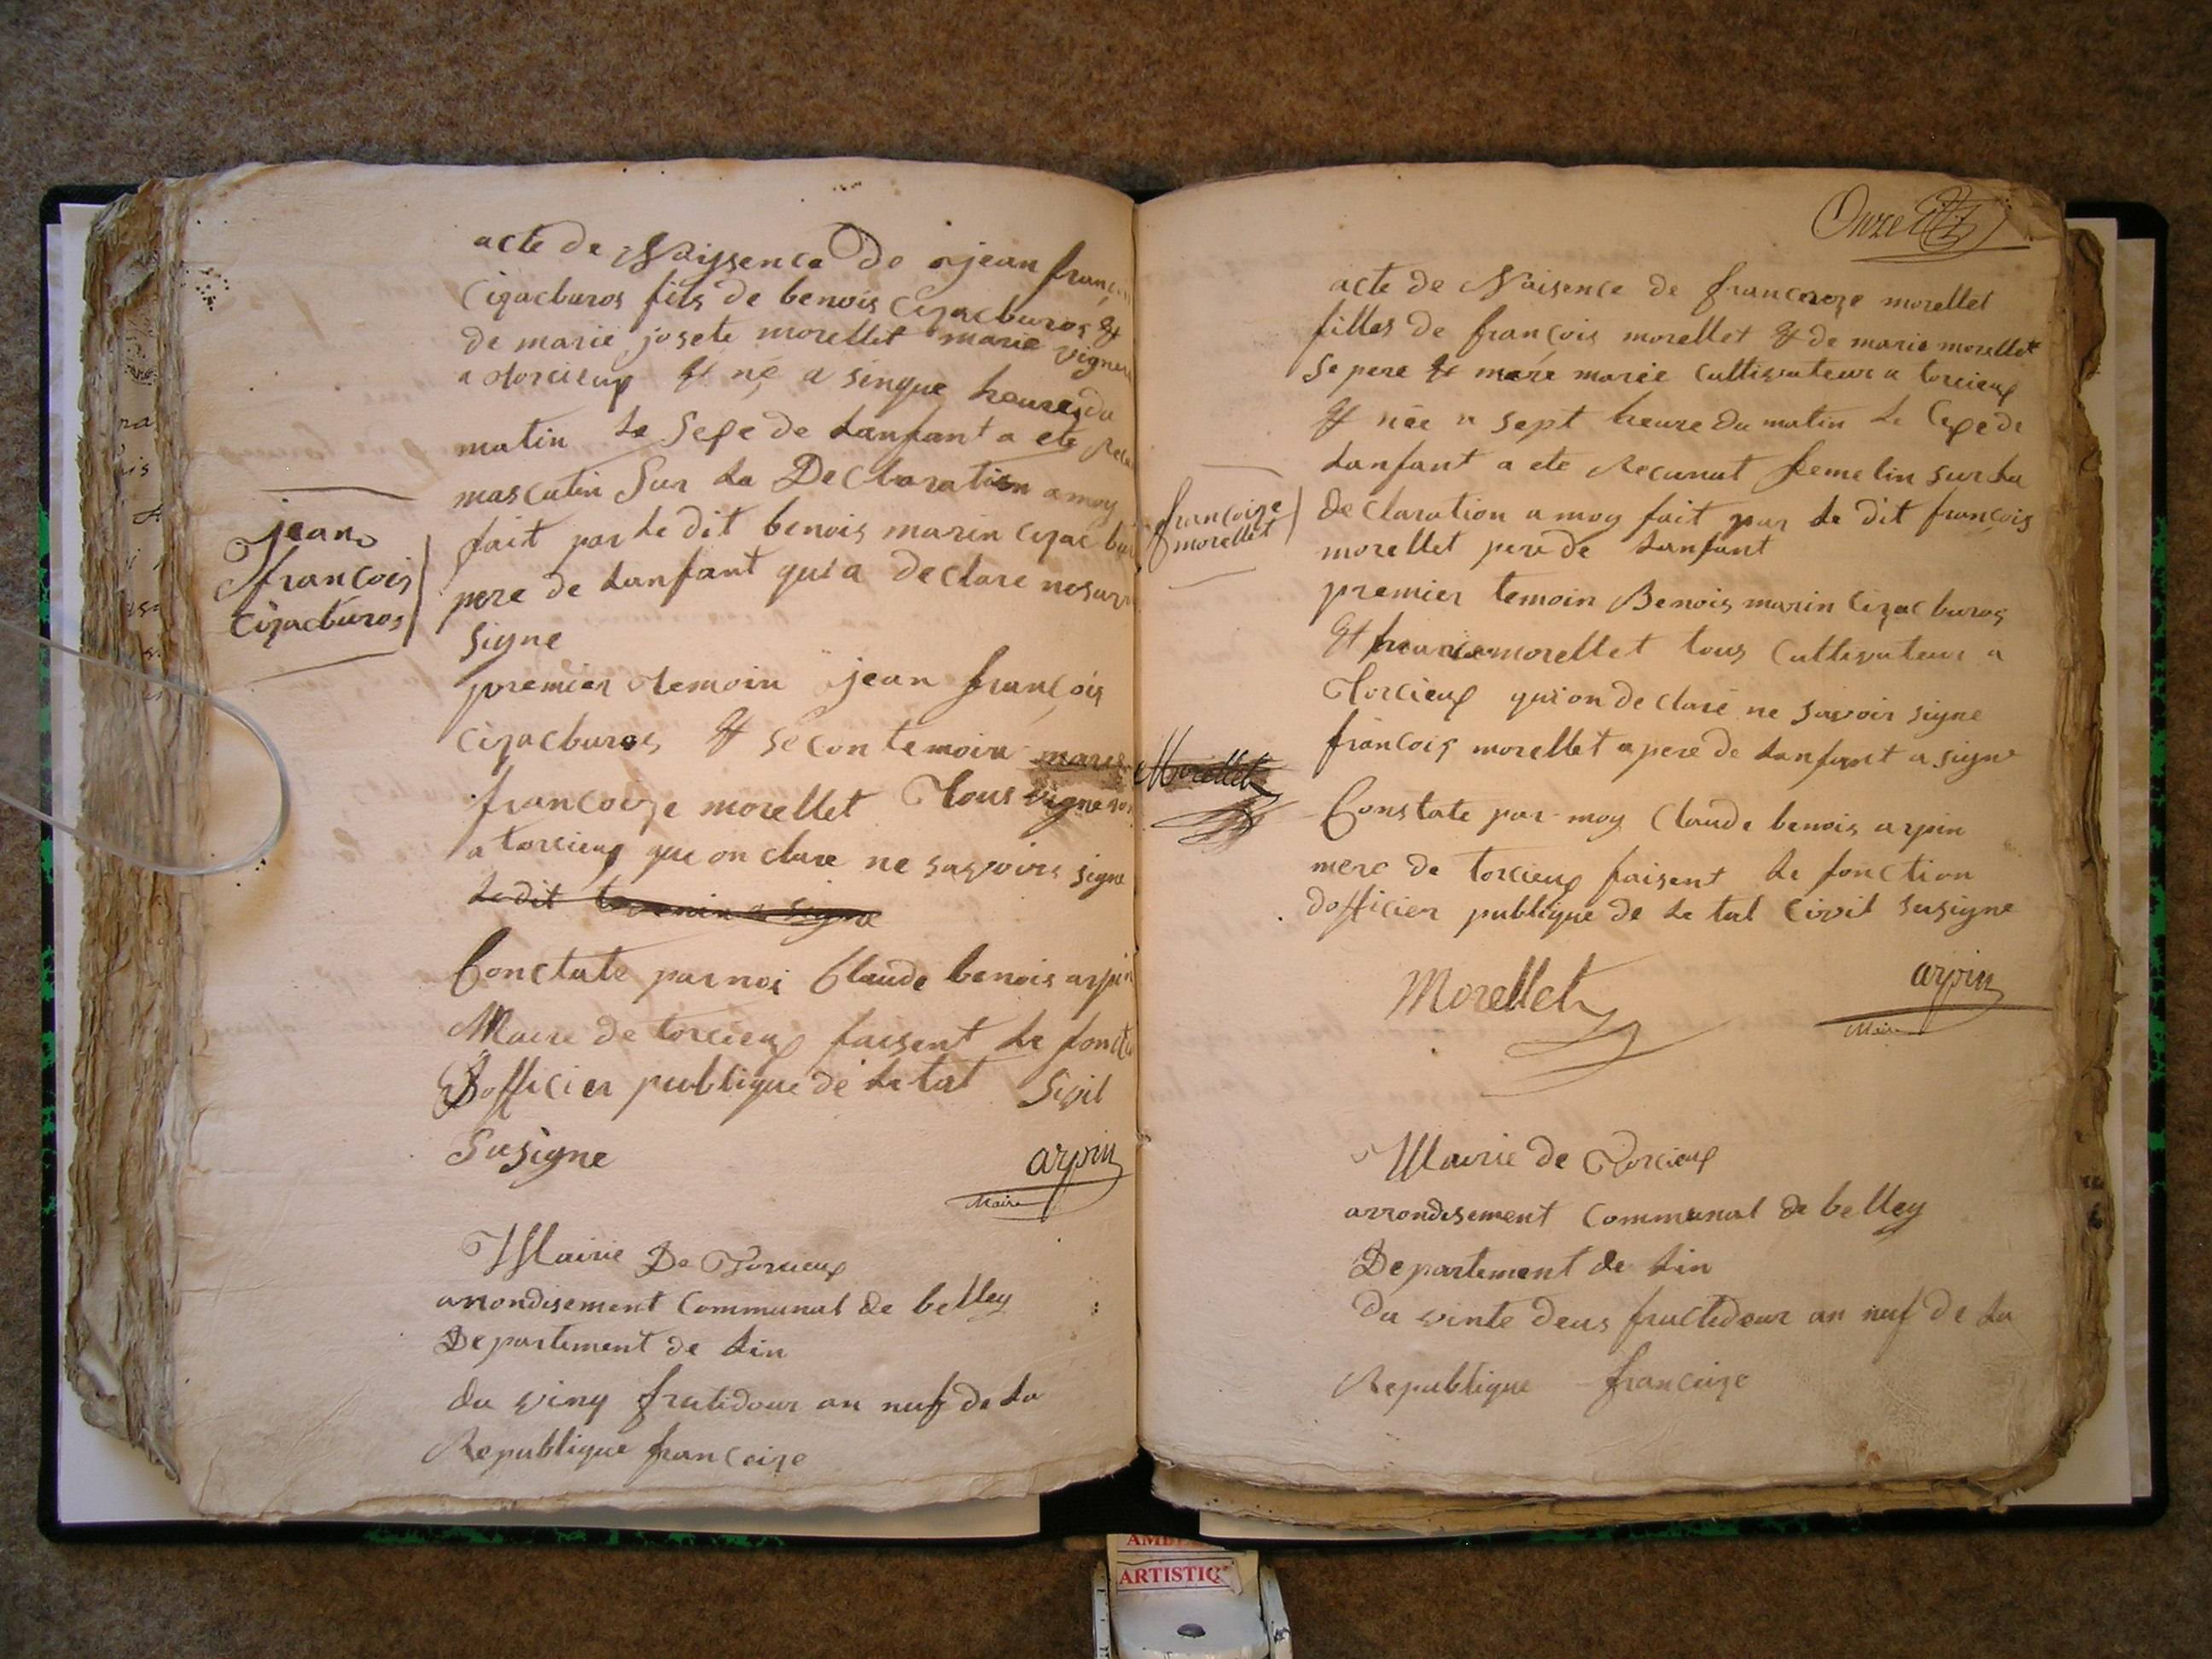 acte de Naissence de jean franç
Cizacburos fils de benois Cizacburos &
de marie josete morellet marie vigner
a torcieux & né a sinque heures du
matin Le Sexe de Lanfant a ete
masculin Sur La Declaration a moy
fait par Le dit benois marin cizac bu
pere de Lanfant qui a declare ne
signe
jean
francois
cizacburos
premier temoin jean françois
cizacburos & secon temoin
francoize morellet Tous vigneron
a torcieux que on clare ne savoire signe
Le dit temoin a signe
Conctate par noi Claude benois arpin
Maire de torcieux faisent Le foncti
D'officier publique de Le tat Sivil
Susigne
arpin
Maire
Mairie De Torcieux
arrondisement Communal de belley
Departement de Lin
du ving frutidour an nuf de La
Republique francoize
Onze
acte de Naisence de francoize morellet
filles de françois morellet & de marie morellet
se pere & mere marie Cultivateur a torcieux
& née a sept heure du matin Le Cexe de
Lanfant a ete Recunut femelin sur La
declaration a moy fait par Le dit françois
morellet pere de Lanfant
francoize
morellet
premier temoin Benois marin Cizacburos
& morellet tous Cultivateur a
Torcieux qui on declare ne savoir signe
françois morellet a pere de Lanfant a signe
Morellet
Constate par moy Claude benois arpin
mere de torcieux faisent Le fonction
dofficier publique de Le tat Civil susigne
Morellet
arpin
Maire
Mairie de Torcieux
arrondisement Communal de belley
Departement de Lin
du vinte deus fructidour an nuf de La
Republique francoize
ARTISTIQ